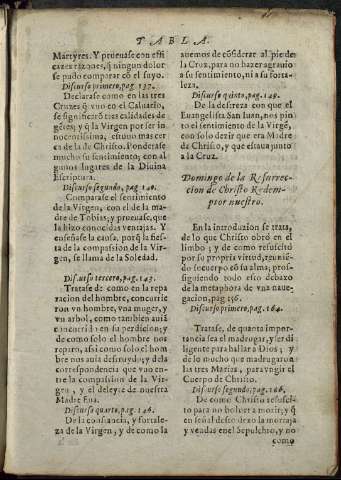 TABLA.
Martyres. Y prueuase con effi
cazes razones, q̃ ningun dolor
se pudo comparar cõ el suyo.
Discurso primero, pag. 137.
Declarase como en las tres
Cruzes q̃ vuo en el Caluario,
se significarõ tres calidades de
gẽtes; y q̃ la Virgen por ser in
nocentissima, estuuo mas cer
ca de la de Christo. Ponderase
mucho su sentimiento, con al
gunos lugares de la Diuina
Escriptura.
Discurso segundo, pag. 140.
Comparase el sentimiento
de la Virgen, con el de la ma
dre de Tobias; y prueuase, que
la hizo conocidas ventajas. Y
enseñase la causa, porq̃ la fies
ta de la compassion de la Vir
gen, se llama de la Soledad.
Discurso tercero, pag. 143.
Tratase de como en la repa
racion del hombre, concurrie
ron vn hombre, vna muger, y
vn arbol, como tambien auiã
concurrido en su perdicion; y
de como solo el hombre nos
reparo, assi como solo el hom
bre nos auia destruydo; y de la
correspondencia que vuo en
tre la compassion de la Vir
gen, y el deleyte de nuestra
Madre Eua.
Discurso quarto, pag. 146.
De la confiança, y fortale
za de la Virgen, y de como la
auemos de cõsiderar al pie de
la Cruz, para no hazer agrauio
a su sentimiento, ni a su forta
leza.
Discurso quinto, pag. 149.
De la destreza con que el
Euangelista San Iuan, nos pin
to el sentimiento de la Virgẽ,
con solo dezir que era Madre
de Christo, y que estaua junto
a la Cruz.
Domingo de la Resurrec-
cion de Christo Redem-
ptor nuestro.
En la introduzion se trata,
de lo que Christo obrò en el
limbo; y de como resuscitò
por su propria virtud, reuniẽ
do su cuerpo cõ su alma; pros-
siguiendo todo esto debaxo
de la metaphora de vna naue-
gacion, pag. 156.
Discurso primero, pag. 164.
Tratase, de quanta impor-
tancia sea el madrugar, y ser di
ligente para hallar a Dios; y
de lo mucho que madrugaron
las tres Marias, para vngir el
Cuerpo de Christo.
Discurso segundo, pag. 166.
De como Christo resuscitò
para no boluer a morir; y q̃
en señal desto dexo la mortaja
y vendas en el Sepulchro, y no
como